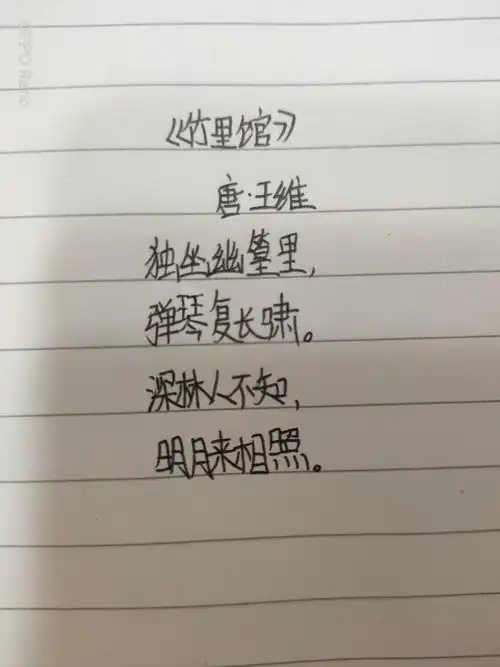 《竹里馆》
唐·王维
独坐幽篁里,
弹琴复长啸。
深林人不知,
明月来相照。